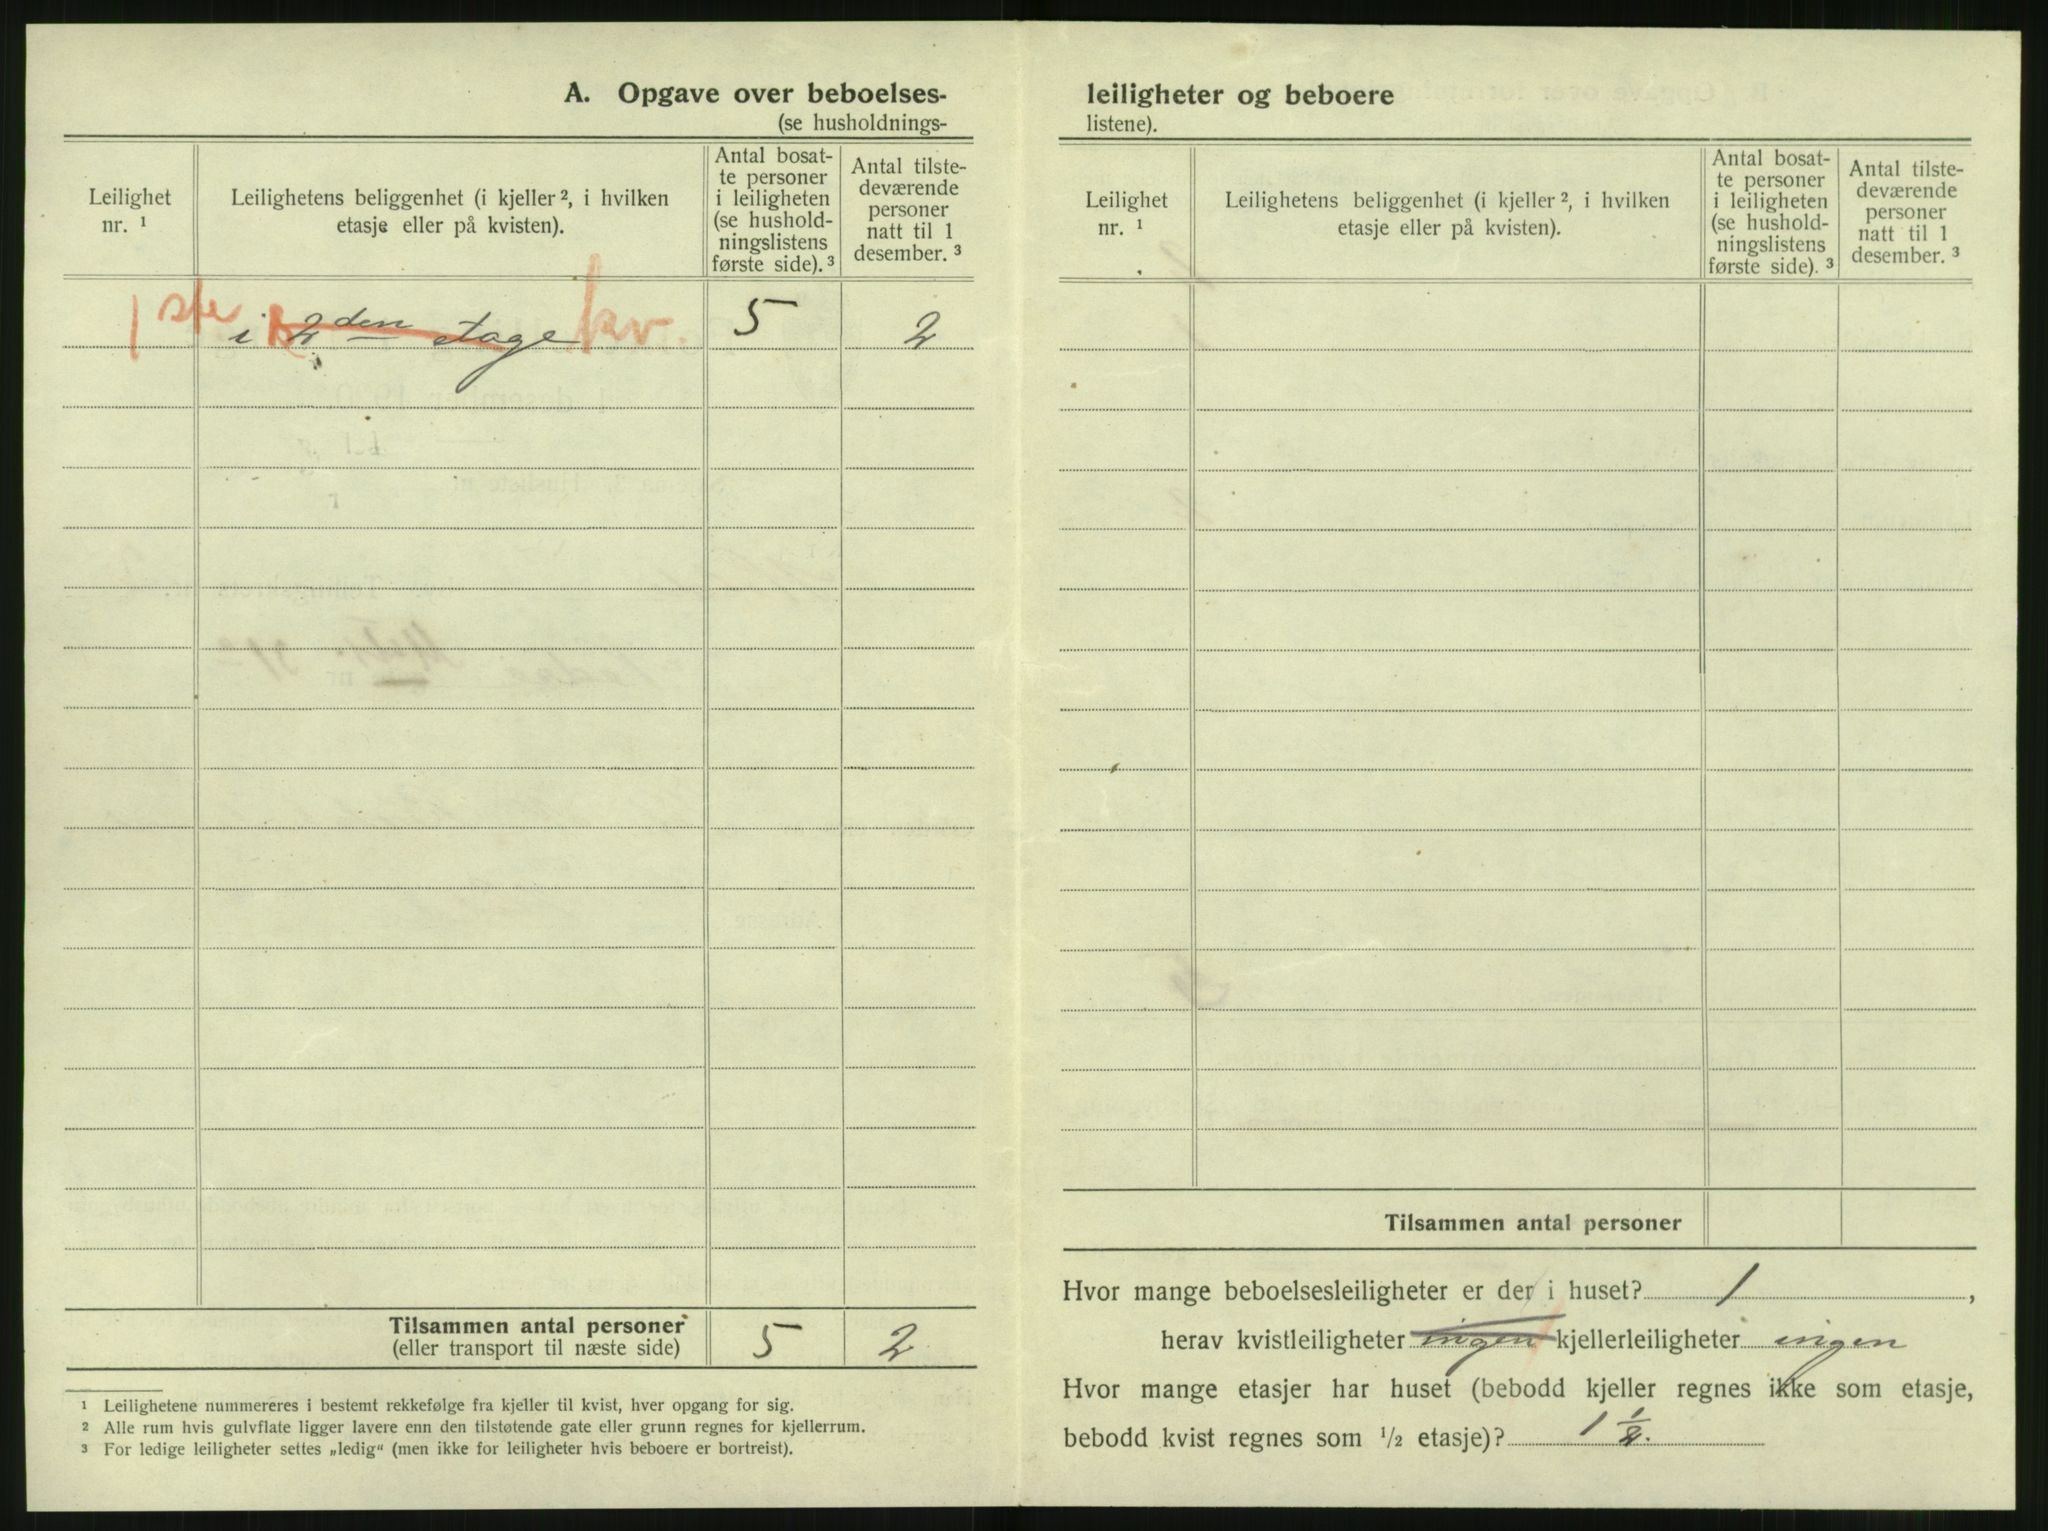 A. Opgave over beboelses-
(se husholdnings-
Leilighet
nr. ¹
Leilighetens beliggenhet (i kjeller ², i hvilken
etasje eller på kvisten).
Antal bosat-
te personer
i leiligheten
(se hushold-
ningslistens
første side). ³
Antal tilste-
deværende
personer
natt til 1
desember. ³
1 ste i 2den etage kv. 5 2
Tilsammen antal personer 5 2
(eller transport til næste side)
¹ Leilighetene nummereres i bestemt rekkefølge fra kjeller til kvist, hver opgang for sig.
² Alle rum hvis gulvflate ligger lavere enn den tilstøtende gate eller grunn regnes for kjellerrum.
³ For ledige leiligheter settes „ledig“ (men ikke for leiligheter hvis beboere er bortreist).
leiligheter og beboere
listene).
Leilighet
nr. ¹
Leilighetens beliggenhet (i kjeller ², i hvilken
etasje eller på kvisten).
Antal bosat-
te personer
i leiligheten
(se hushold-
ningslistens
første side). ³
Antal tilste-
deværende
personer
natt til 1
desember. ³
Tilsammen antal personer
Hvor mange beboelsesleiligheter er der i huset? 1,
herav kvistleiligheter ingen kjellerleiligheter ingen
Hvor mange etasjer har huset (bebodd kjeller regnes ikke som etasje,
bebodd kvist regnes som ½ etasje)? 1 ½.